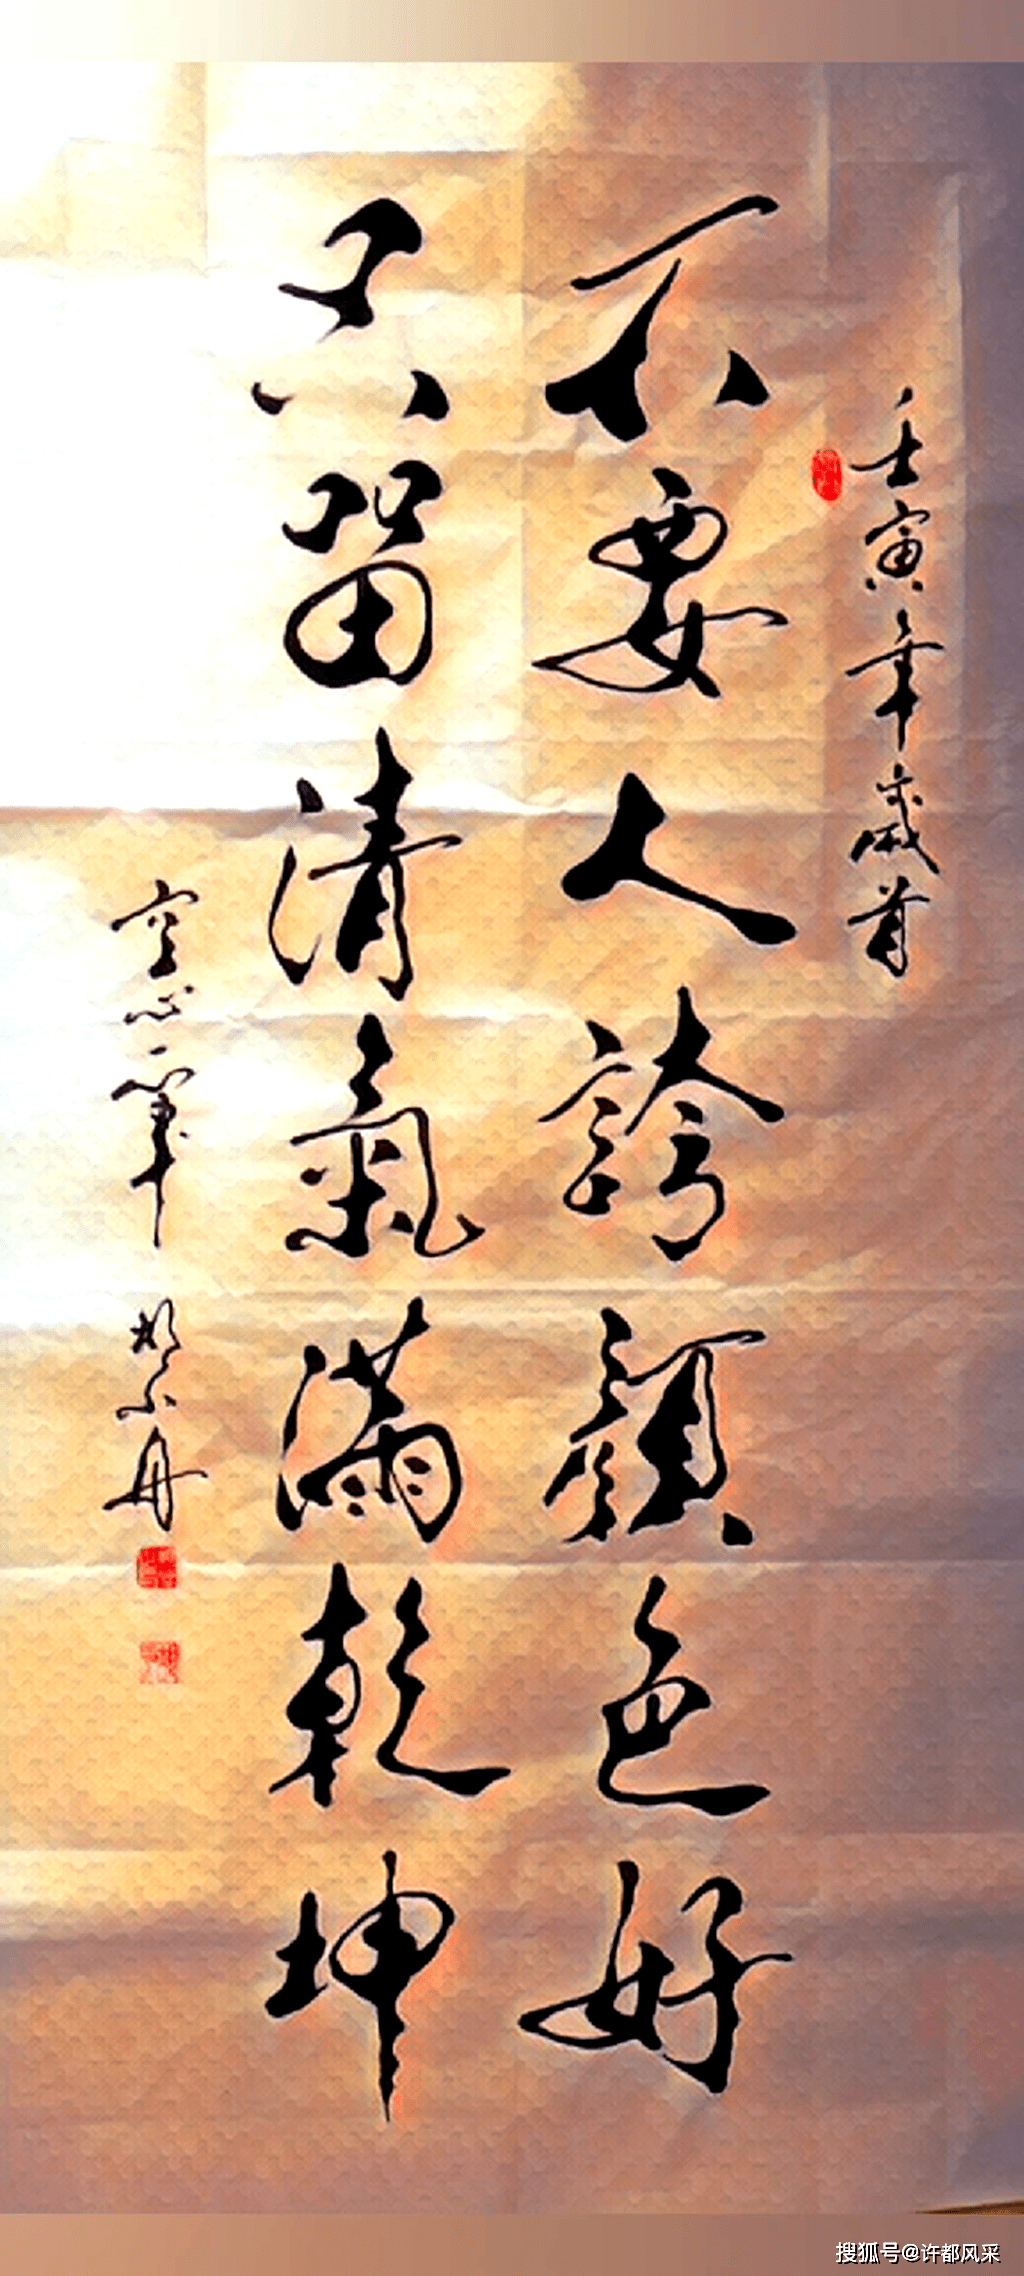 壬寅年歲首
不要人誇顔色好
只留清氣滿乾坤
空心筆
搜狐号@许都风采